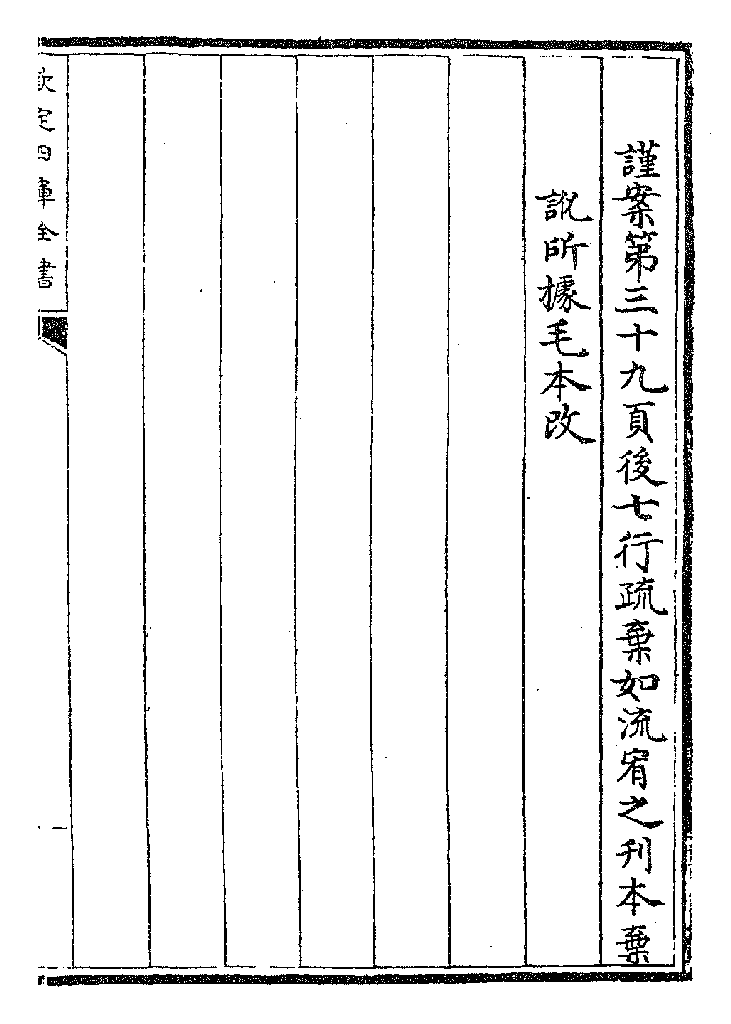 謹案第三十九頁後七行疏棄如流宥之刊本棄
訛所據毛本改
欽定四庫全書